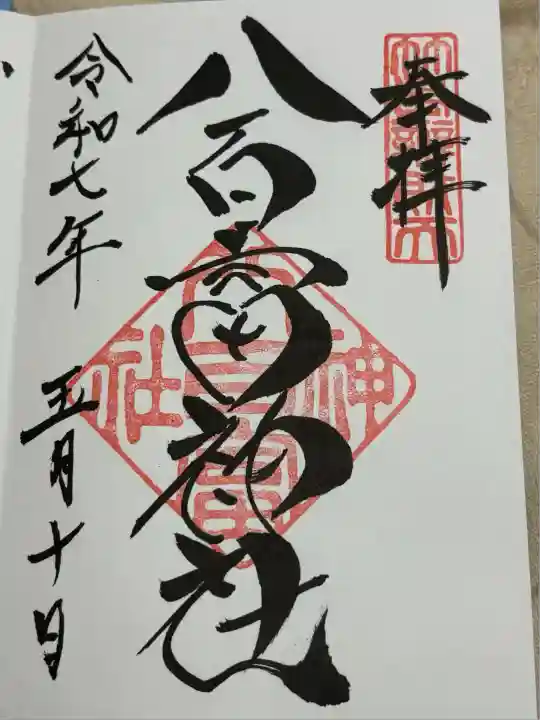 奉拝
八百富神社
神
社
令和七年 五月十日